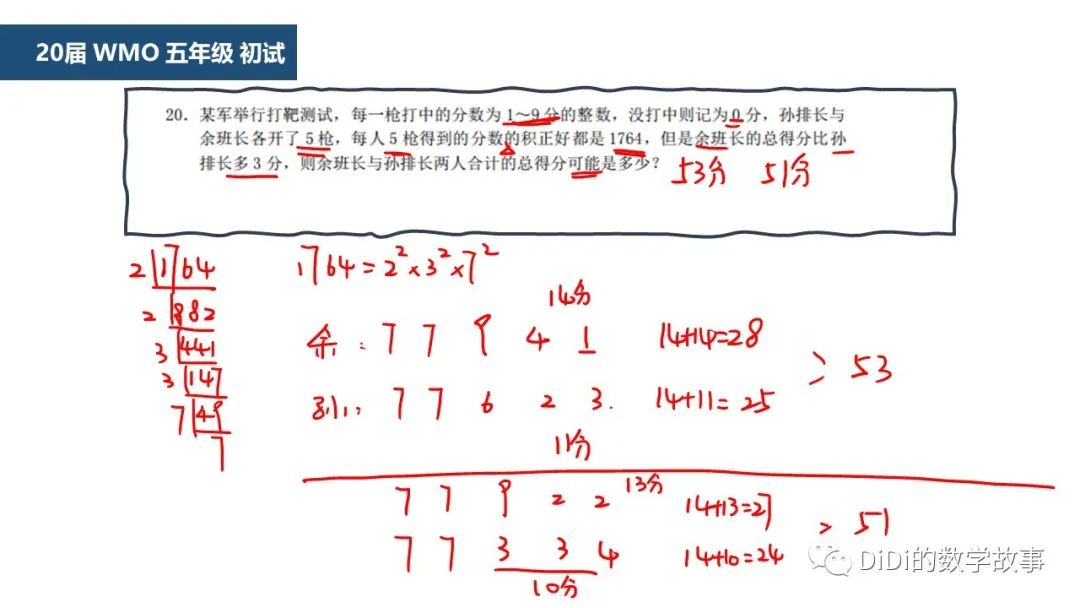 20届 WMO 五年级 初试
20. 某军举行打靶测试，每一枪打中的分数为 1～9 分的整数，没打中则记为 0 分，孙排长与
余班长各开了 5 枪，每人 5 枪得到的分数的积正好都是 1764，但是余班长的总得分比孙
排长多 3 分，则余班长与孙排长两人合计的总得分可能是多少？ 53分 51分
2 1764
1764=2²×3²×7²
2 882
14分
3 441
余: 7 7 9 4 1 14+14=28
3 147
53
7 49
孙: 7 7 6 2 3. 14+11=25
7
11分
7 7 9 2 2 13分 14+13=27
51
7 7 3 3 4 14+10=24
10分
DiDi的数学故事